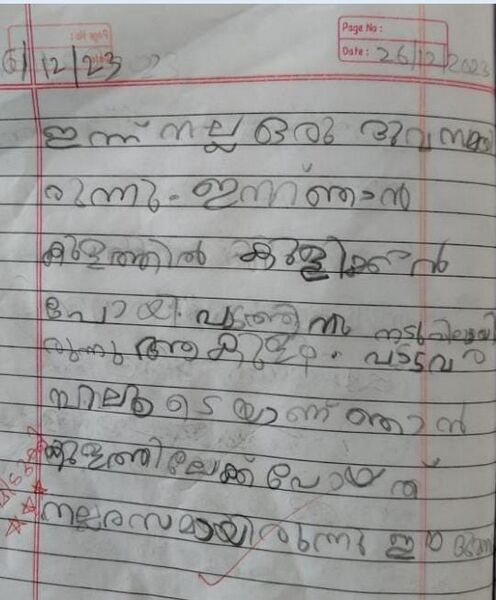 Page No :
6/12/23
Date : 26/12/2023
ഇന്ന് നല്ല ഒരു ദിവസമാ
രുന്നു. ഇന്ന് ഞാൻ
കുളത്തിൽ കുളിക്കാൻ
പോയി. പാടത്തിനു നടുവിലായി
രുന്നു ആ കുളം. പാടവര
മ്പിലൂടെയാണ് ഞാൻ
കുളത്തിലേക്ക് പോയത്
നല്ല രസമായിരുന്നു ഈ